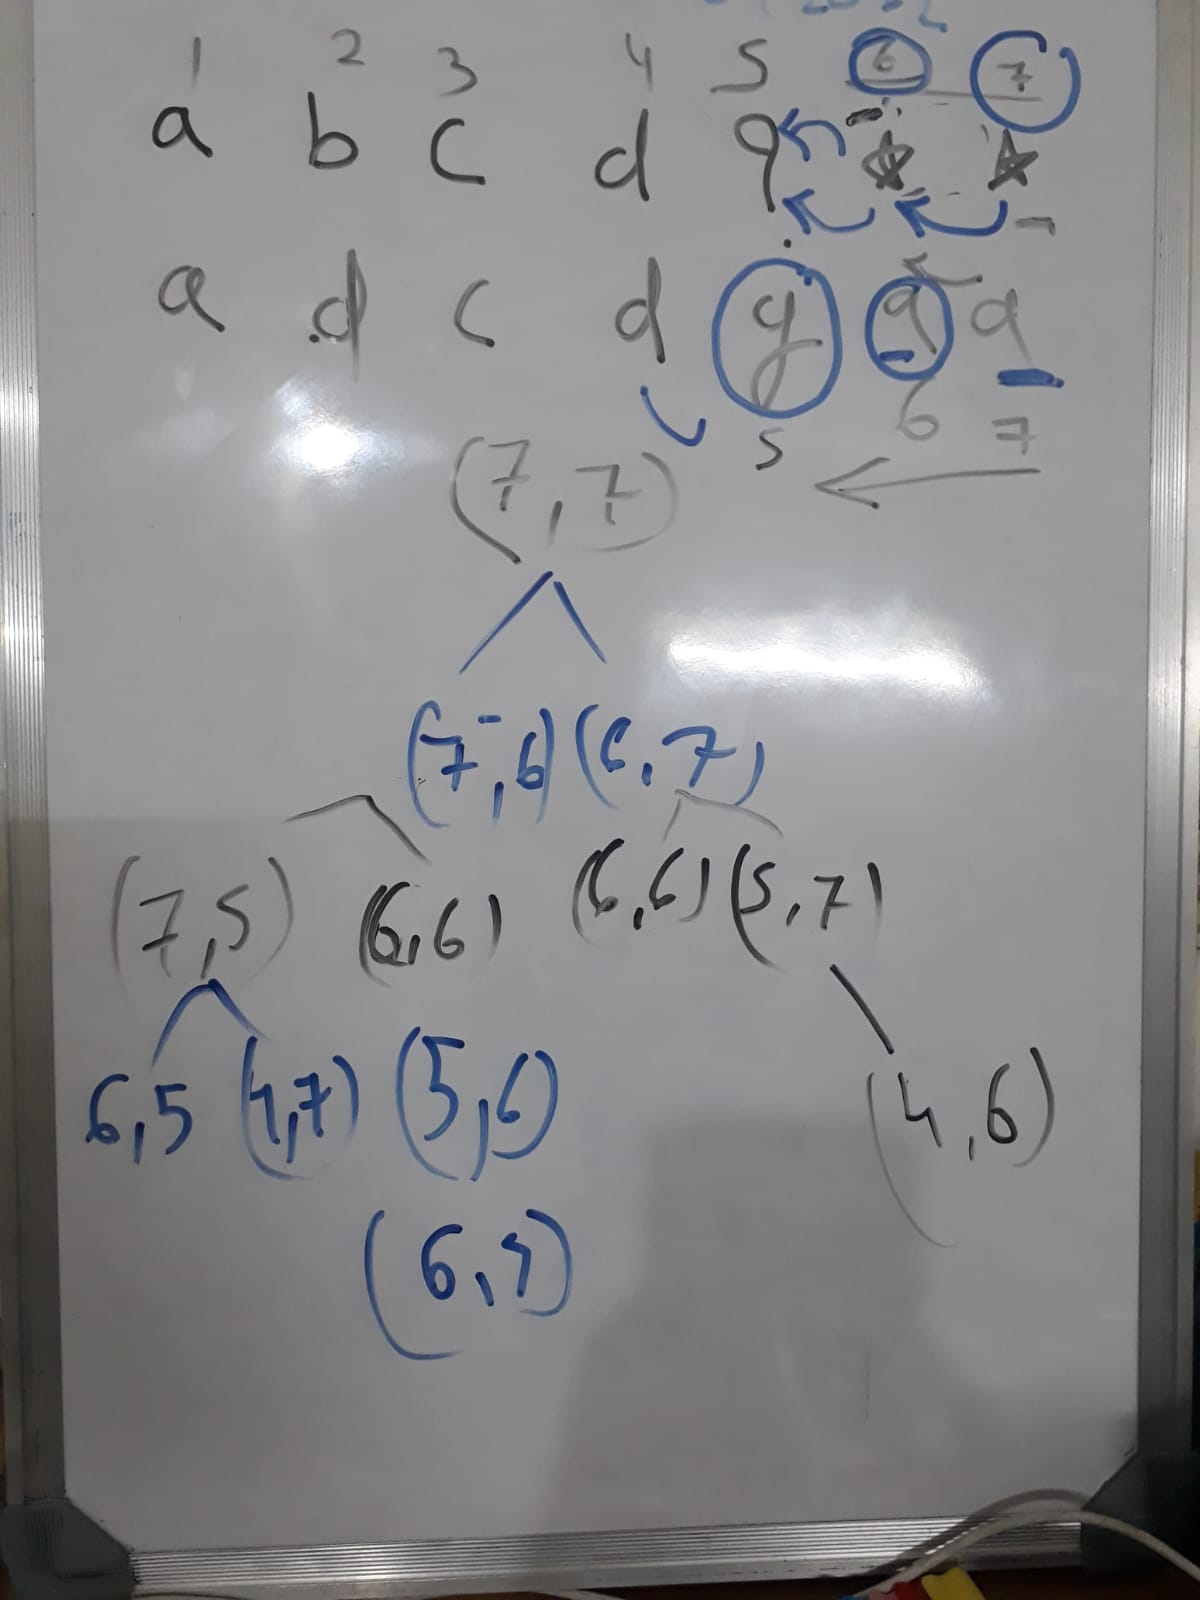 1 2 3 4 5 6 7
a b c d q
a d c d g q q
5 6 7
(7,7)
(7,6) (6,7)
(7,5) (6,6) (6,6) (5,7)
6,5 (4,7) (5,6) (4,6)
(6,